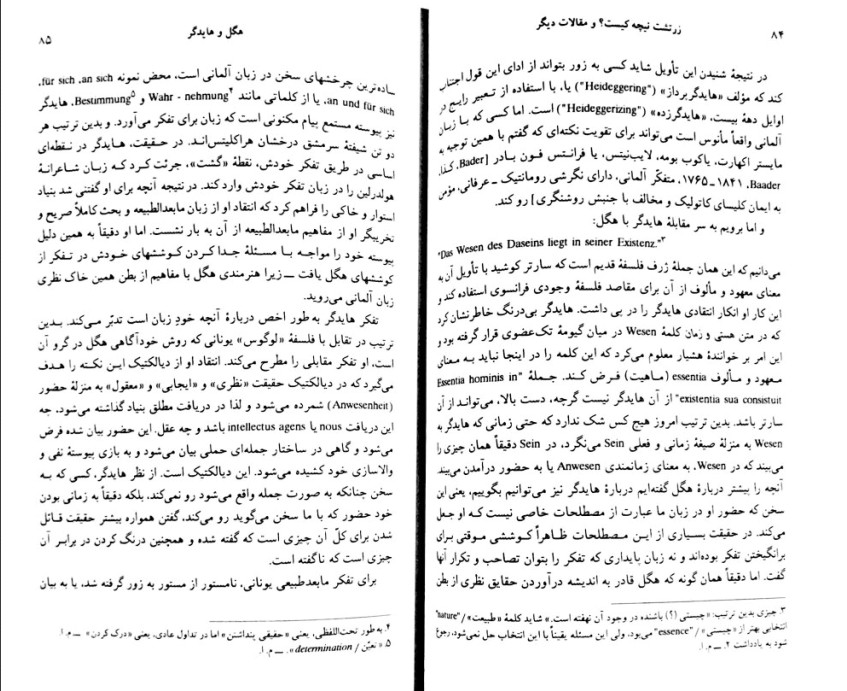 ۸۴
زرتشت نیچه کیست؟ و مقالات دیگر
در نتیجهٔ شنیدن این تأویل شاید کسی به زور بتواند از ادای این قول اجتناب
کند که مؤلف «هایدگربرداز» ("Heideggering") یا، با استفاده از تعبیر رایج در
اوایل دههٔ بیست، «هایدگرزده» ("Heideggerizing") است. اما کسی که با زبان
آلمانی واقعاً مأنوس است می‌تواند برای تقویت نکته‌ای که گفتم با همین توجیه به
مایستر اکهارت، یاکوب بومه، لایب‌نیتس، یا فرانتس فون بادر [Bader، کذا،
Baader، ۱۸۴۱ـ۱۷۶۵، متفکّر آلمانی، دارای نگرشی رومانتیک ـ عرفانی، مؤمن
به ایمان کلیسای کاتولیک و مخالف با جنبش روشنگری] رو کند.
و اما برویم به سر مقابلهٔ هایدگر با هگل:
"Das Wesen des Daseins liegt in seiner Existenz."۳
می‌دانیم که این همان جملهٔ ژرف فلسفهٔ قدیم است که سارتر کوشید با تأویل آن به
معنای معهود و مألوف از آن برای مقاصد فلسفهٔ وجودی فرانسوی استفاده کند و
این کار او انکار انتقادی هایدگر را در پی داشت. هایدگر بی‌درنگ خاطرنشان کرد
که در متن هستی و زمان کلمهٔ Wesen در میان گیومهٔ تک‌عضوی قرار گرفته بود و
این امر بر خوانندهٔ هشیار معلوم می‌کرد که این کلمه را در اینجا نباید به معنای
معهود و مألوف essentia (ماهیت) فرض کند. جملهٔ "Essentia hominis in
existentia sua consistuit" از آن هایدگر نیست گرچه، دست بالا، می‌تواند از آن
سارتر باشد. بدین ترتیب امروز هیچ کس شک ندارد که حتی زمانی که هایدگر به
Wesen به منزلهٔ صیغهٔ زمانی و فعلی Sein می‌نگرد، در Sein دقیقاً همان چیزی را
می‌بیند که در Wesen، به معنای زمانمندی Anwesen یا به حضور درآمدن می‌بیند
آنچه را بیشتر دربارهٔ هگل گفته‌ایم دربارهٔ هایدگر نیز می‌توانیم بگوییم، یعنی این
سخن که حضور او در زبان ما عبارت از مصطلحات خاصی نیست که او جعل
می‌کند. در حقیقت بسیاری از این مصطلحات ظاهراً کوششی موقتی برای
برانگیختن تفکر بوده‌اند و نه زبان پایداری که تفکر را بتوان تصاحب و تکرار آنها
گفت. اما دقیقاً همان گونه که هگل قادر به اندیشه درآوردن حقایق نظری از بطن
۳. چیزی بدین ترتیب: «چیستی (؟) باشنده در وجود آن نهفته است.» شاید کلمهٔ «طبیعت»/"nature"
انتخابی بهتر از «چیستی»/"essence" می‌بود، ولی این مسئله یقیناً با این انتخاب حل نمی‌شود، رجوع
شود به یادداشت ۲. ــ م. ا.
هگل و هایدگر
۸۵
ساده‌ترین چرخشهای سخن در زبان آلمانی است، محض نمونه für sich ،an sich،
an und für sich، یا از کلماتی مانند Wahr - nehmung۴ و Bestimmung۵، هایدگر
نیز پیوسته مستمع پیام مکنونی است که زبان برای تفکر می‌آورد. و بدین ترتیب هر
دو تن شیفتهٔ سرمشق درخشان هراکلیتس‌اند. در حقیقت، هایدگر در نقطه‌ای
اساسی در طریق تفکر خودش، نقطهٔ «گشت»، جرئت کرد که زبان شاعرانهٔ
هولدرلین را در زبان تفکر خودش وارد کند. در نتیجه آنچه برای او گفتنی شد بنیاد
استوار و خاکی را فراهم کرد که انتقاد او از زبان مابعدالطبیعه و بحث کاملاً صریح و
تخریبگر او از مفاهیم مابعدالطبیعه از آن به بار نشست. اما او دقیقاً به همین دلیل
پیوسته خود را مواجه با مسئلهٔ جدا کردن کوششهای خودش در تفکر از
کوششهای هگل یافت ــ زیرا هنرمندی هگل با مفاهیم از بطن همین خاک نظری
زبان آلمانی می‌روید.
تفکر هایدگر به طور اخص دربارهٔ آنچه خودِ زبان است تدبّر می‌کند. بدین
ترتیب در تقابل با فلسفهٔ «لوگوس» یونانی که روش خودآگاهی هگل در گرو آن
است، او تفکر مقابلی را مطرح می‌کند. انتقاد او از دیالکتیک این نکته را هدف
می‌گیرد که در دیالکتیک حقیقت «نظری» و «ایجابی» و «معقول» به منزلهٔ حضور
(Anwesenheit) شمرده می‌شود و لذا در دریافت مطلق بنیاد گذاشته می‌شود، چه
این دریافت nous یا intellectus agens باشد و چه عقل. این حضور بیان شده فرض
می‌شود و گاهی در ساختار جمله‌ای حملی بیان می‌شود و به بازی پیوستهٔ نفی و
والاسازی خود کشیده می‌شود. این دیالکتیک است. از نظر هایدگر، کسی که به
سخن چنانکه به صورت جمله واقع می‌شود رو نمی‌کند، بلکه دقیقاً به زمانی بودن
خود حضور که با ما سخن می‌گوید رو می‌کند، گفتن همواره بیشتر حقیقت قائل
شدن برای کلّ آن چیزی است که گفته شده و همچنین درنگ کردن در برابر آن
چیزی است که ناگفته است.
برای تفکر مابعدطبیعی یونانی، نامستور از مستور به زور گرفته شد، یا به بیان
۴. به طور تحت‌اللفظی، یعنی «حقیقی پنداشتن» اما در تداول عادی، یعنی «درک کردن» ــ م. ا.
۵. «تعیّن / determination». ــ م. ا.